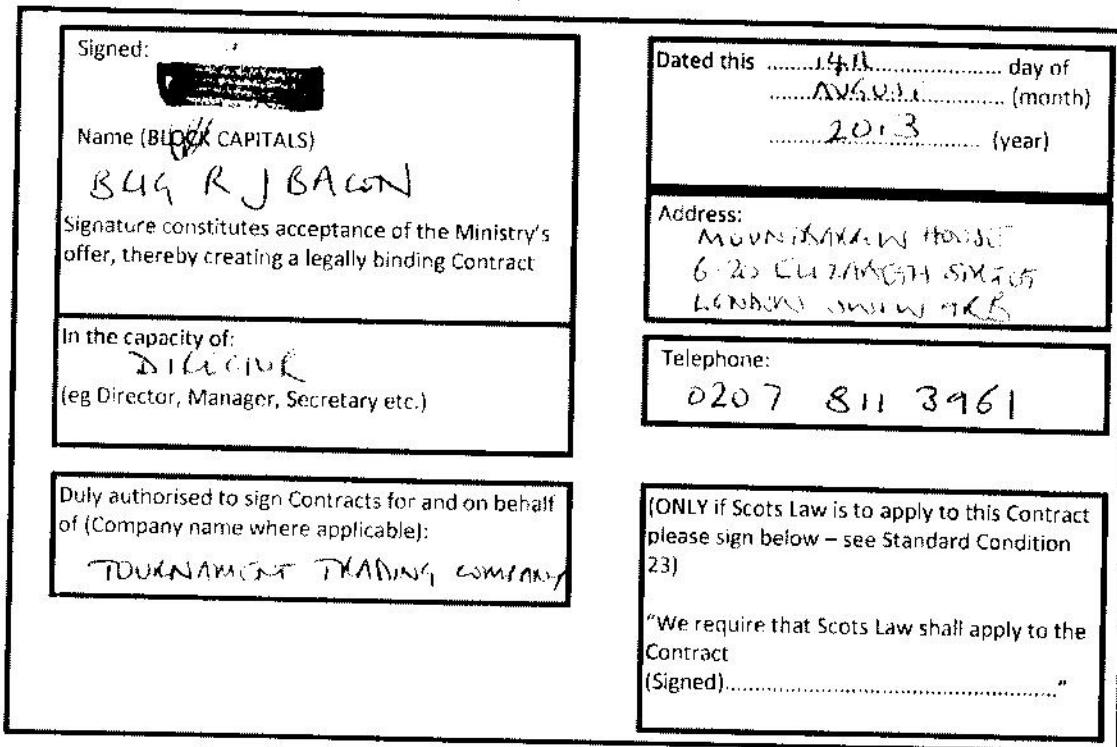 Signed:
Name (BLOCK CAPITALS)
R J BACON
Signature constitutes acceptance of the Ministry's
offer, thereby creating a legally binding Contract
In the capacity of:
DIRECTOR
(eg Director, Manager, Secretary etc.)
Duly authorised to sign Contracts for and on behalf
of (Company name where applicable):
TOURNAMENT TRADING COMPANY
Dated this ........14th........................ day of
........AUGUST................ (month)
........2013.................... (year)
Address:
HOUSE
6-20 ELIZABETH STREET
LONDON
Telephone:
0207 811 3961
(ONLY if Scots Law is to apply to this Contract
please sign below – see Standard Condition
23)
"We require that Scots Law shall apply to the
Contract
(Signed)...................................................."